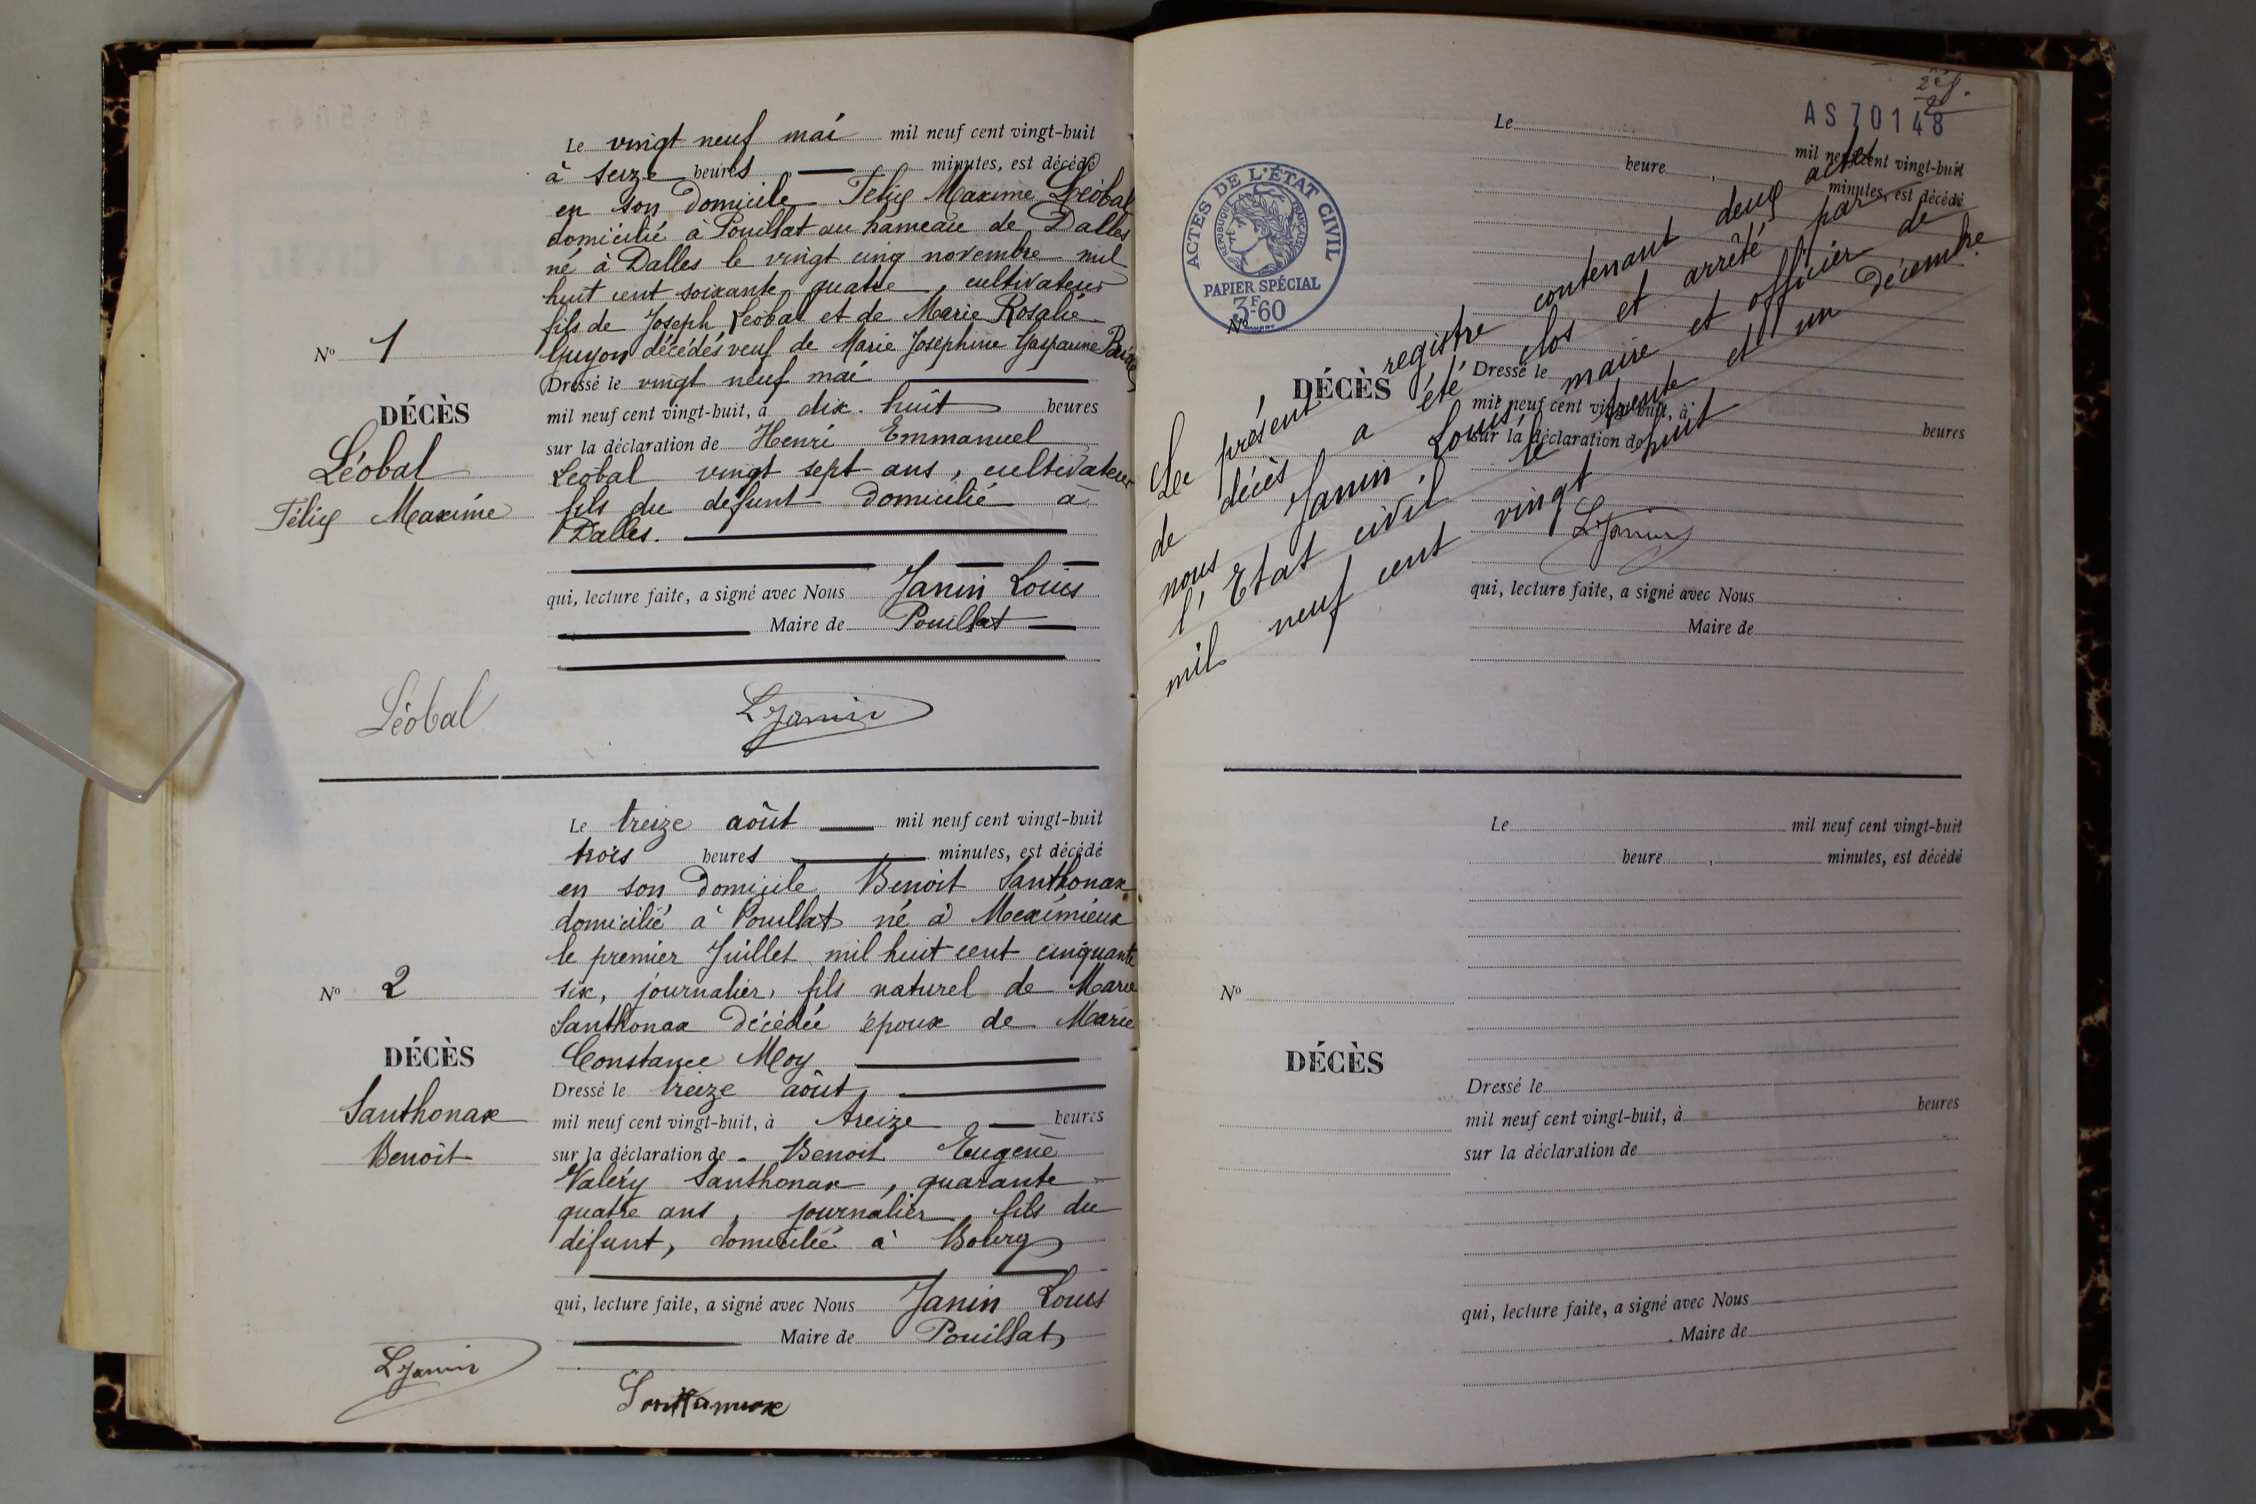 Le vingt neuf mai mil neuf cent vingt-huit
à seize heures minutes, est décédé
en son domicile Félix Maxime Léobal
domicilié à Pouillat au hameau de Dalles
né à Dalles le vingt cinq novembre mil
huit cent soixante quatre, cultivateur
fils de Joseph Léobal et de Marie Rosalie
Guyon décédés veuf de Marie Joséphine Gasparine
Dressé le vingt neuf mai
mil neuf cent vingt-huit, à dix-huit heures
sur la déclaration de Henri Emmanuel
Léobal vingt sept ans, cultivateur
fils du défunt domicilié à
Dalles.
qui, lecture faite, a signé avec Nous Janin Louis
Maire de Pouillat
No 1
DÉCÈS
Léobal
Félix Maxime
Léobal
LJanin
Le treize août mil neuf cent vingt-huit
trois heures minutes, est décédé
en son domicile Benoit Santhonax
domicilié à Pouillat né à Meximieux
le premier Juillet mil huit cent cinquante
six, journalier, fils naturel de Marie
Santhonax décédée époux de Marie
Constance Moy
Dressé le treize août
mil neuf cent vingt-huit, à treize heures
sur la déclaration de Benoit Eugène
Valéry Santhonax, quarante
quatre ans, journalier, fils du
défunt, domicilié à Bourg
qui, lecture faite, a signé avec Nous Janin Louis
Maire de Pouillat
No 2
DÉCÈS
Santhonax
Benoît
LJanin
Santhonax
AS 70148
ACTES DE L'ÉTAT CIVIL
RÉPUBLIQUE FRANÇAISE
PAPIER SPÉCIAL
3F60
Le mil neuf cent vingt-huit
heure, minutes, est décédé
No
DÉCÈS
Dressé le
mil neuf cent vingt-huit, à heures
sur la déclaration de
qui, lecture faite, a signé avec Nous
Maire de
Le présent registre contenant deux actes
de décès a été clos et arrêté par
nous Janin, Louis, maire et officier de
l'Etat civil le trente et un décembre
mil neuf cent vingt huit
LJanin
Le mil neuf cent vingt-huit
heure, minutes, est décédé
No
DÉCÈS
Dressé le
mil neuf cent vingt-huit, à heures
sur la déclaration de
qui, lecture faite, a signé avec Nous
Maire de